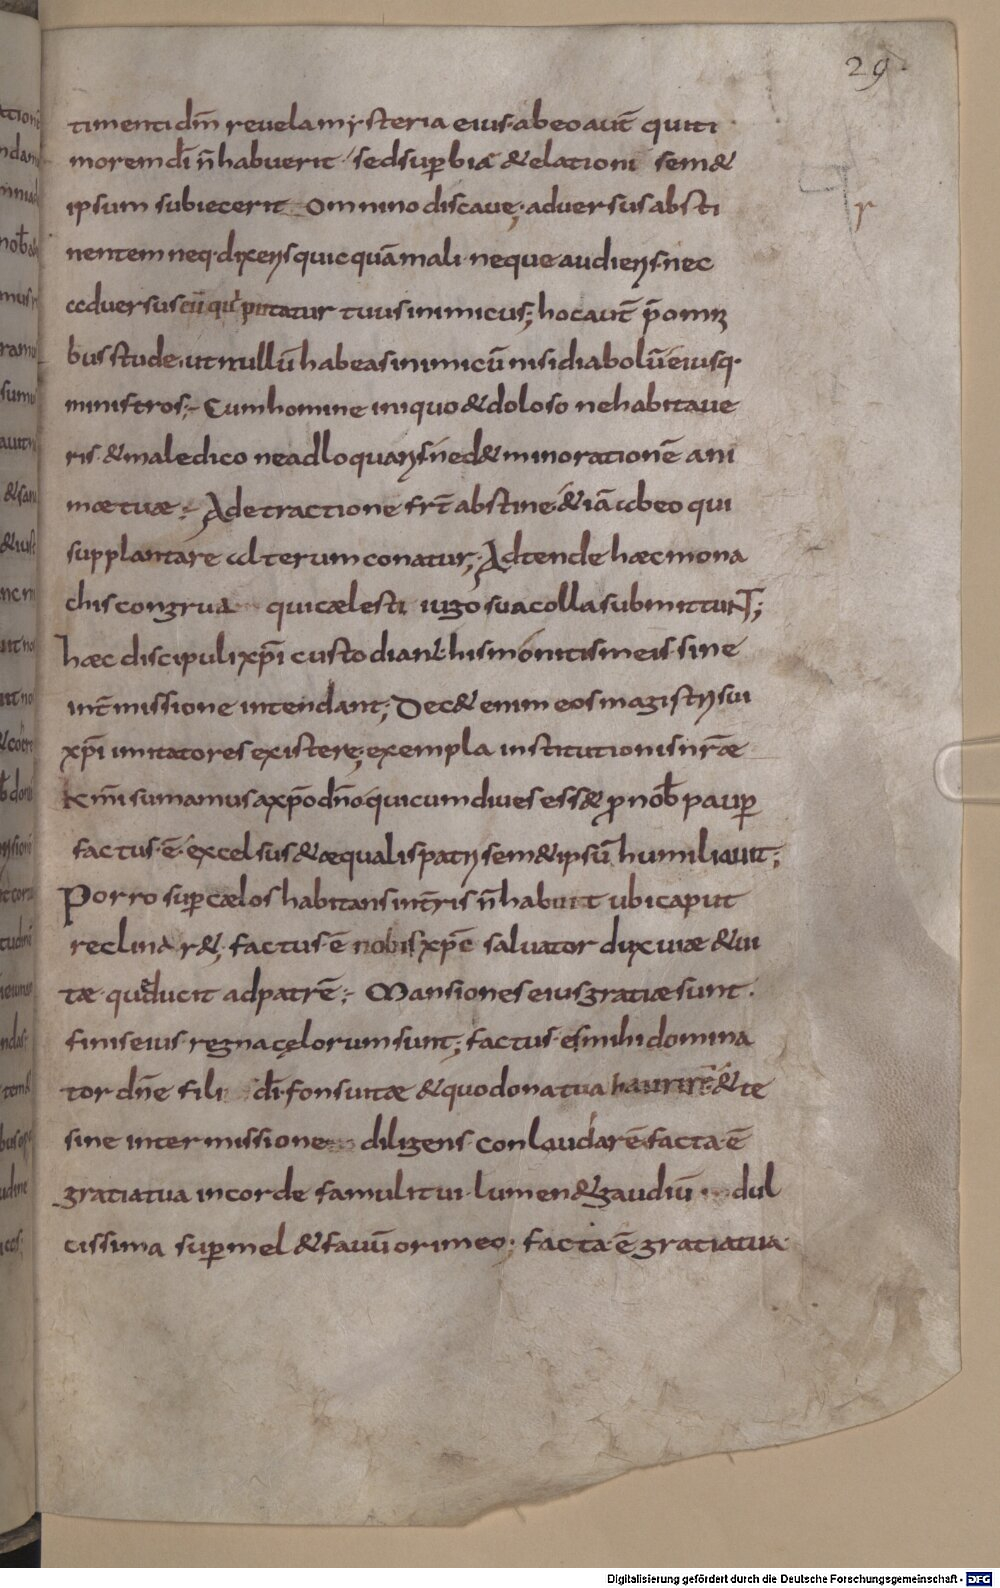 29.
timenti dm̄ reuela mysteria eius· ab eo aut̄ qui ti
morem dī n̄ habuerit· sed superbiæ & elationi sem&
ipsum subiecerit Omnino discaue; aduersus absti
nentem neq· dixeris quicquā mali· neque audieris· nec
aduersus cū qui putatur tuus inimicus; hoc aut̄ p̄ omni
bus stude ut nullū habeas inimicū nisi diabolū eiusq·
ministros; Cum homine iniquo & doloso ne habitaue
ris· & maledico ne adloquaris· ned& minorationē ani
mæ tuæ; A detractione frī abstine & iā ab eo qui
supplantare alterum conatur; Adtende hæc mona
chis congrua qui cælesti iugo sua colla submittuNT;
hæc discipuli xp̄i custodiant· his monitis meis sine
int̄missione intendant; Dec& enim eos magistri sui
xp̄i imitatores existere; exempla institutionis nr̄æ
km̄i sumamus a xp̄o dn̄o qui cum diues ess& pro nob̄ pauper
factus· ē· excelsus & æqualis patri sem&ipsū humiliauit;
Porro super cælos habitans in t̄ris n̄ habuit ubi caput
reclinar&; factus ē nobis xp̄c saluator dux uiæ & ui
tæ· quæ ducit ad patrē; Mansiones eius gratiæ sunt·
finis eius· regna cęlorum sunt; factus· es mihi domina
tor dn̄e fili dī· fons uitæ & quo dona tua haurire· & te
sine intermissione diligens· conlaudarē· facta· ē
gratia tua in corde famuli tui· lumen & gaudiū dul
cissima super mel & fauū ori meo; facta· ē gratia tua·
r
Digitalisierung gefördert durch die Deutsche Forschungsgemeinschaft - DFG